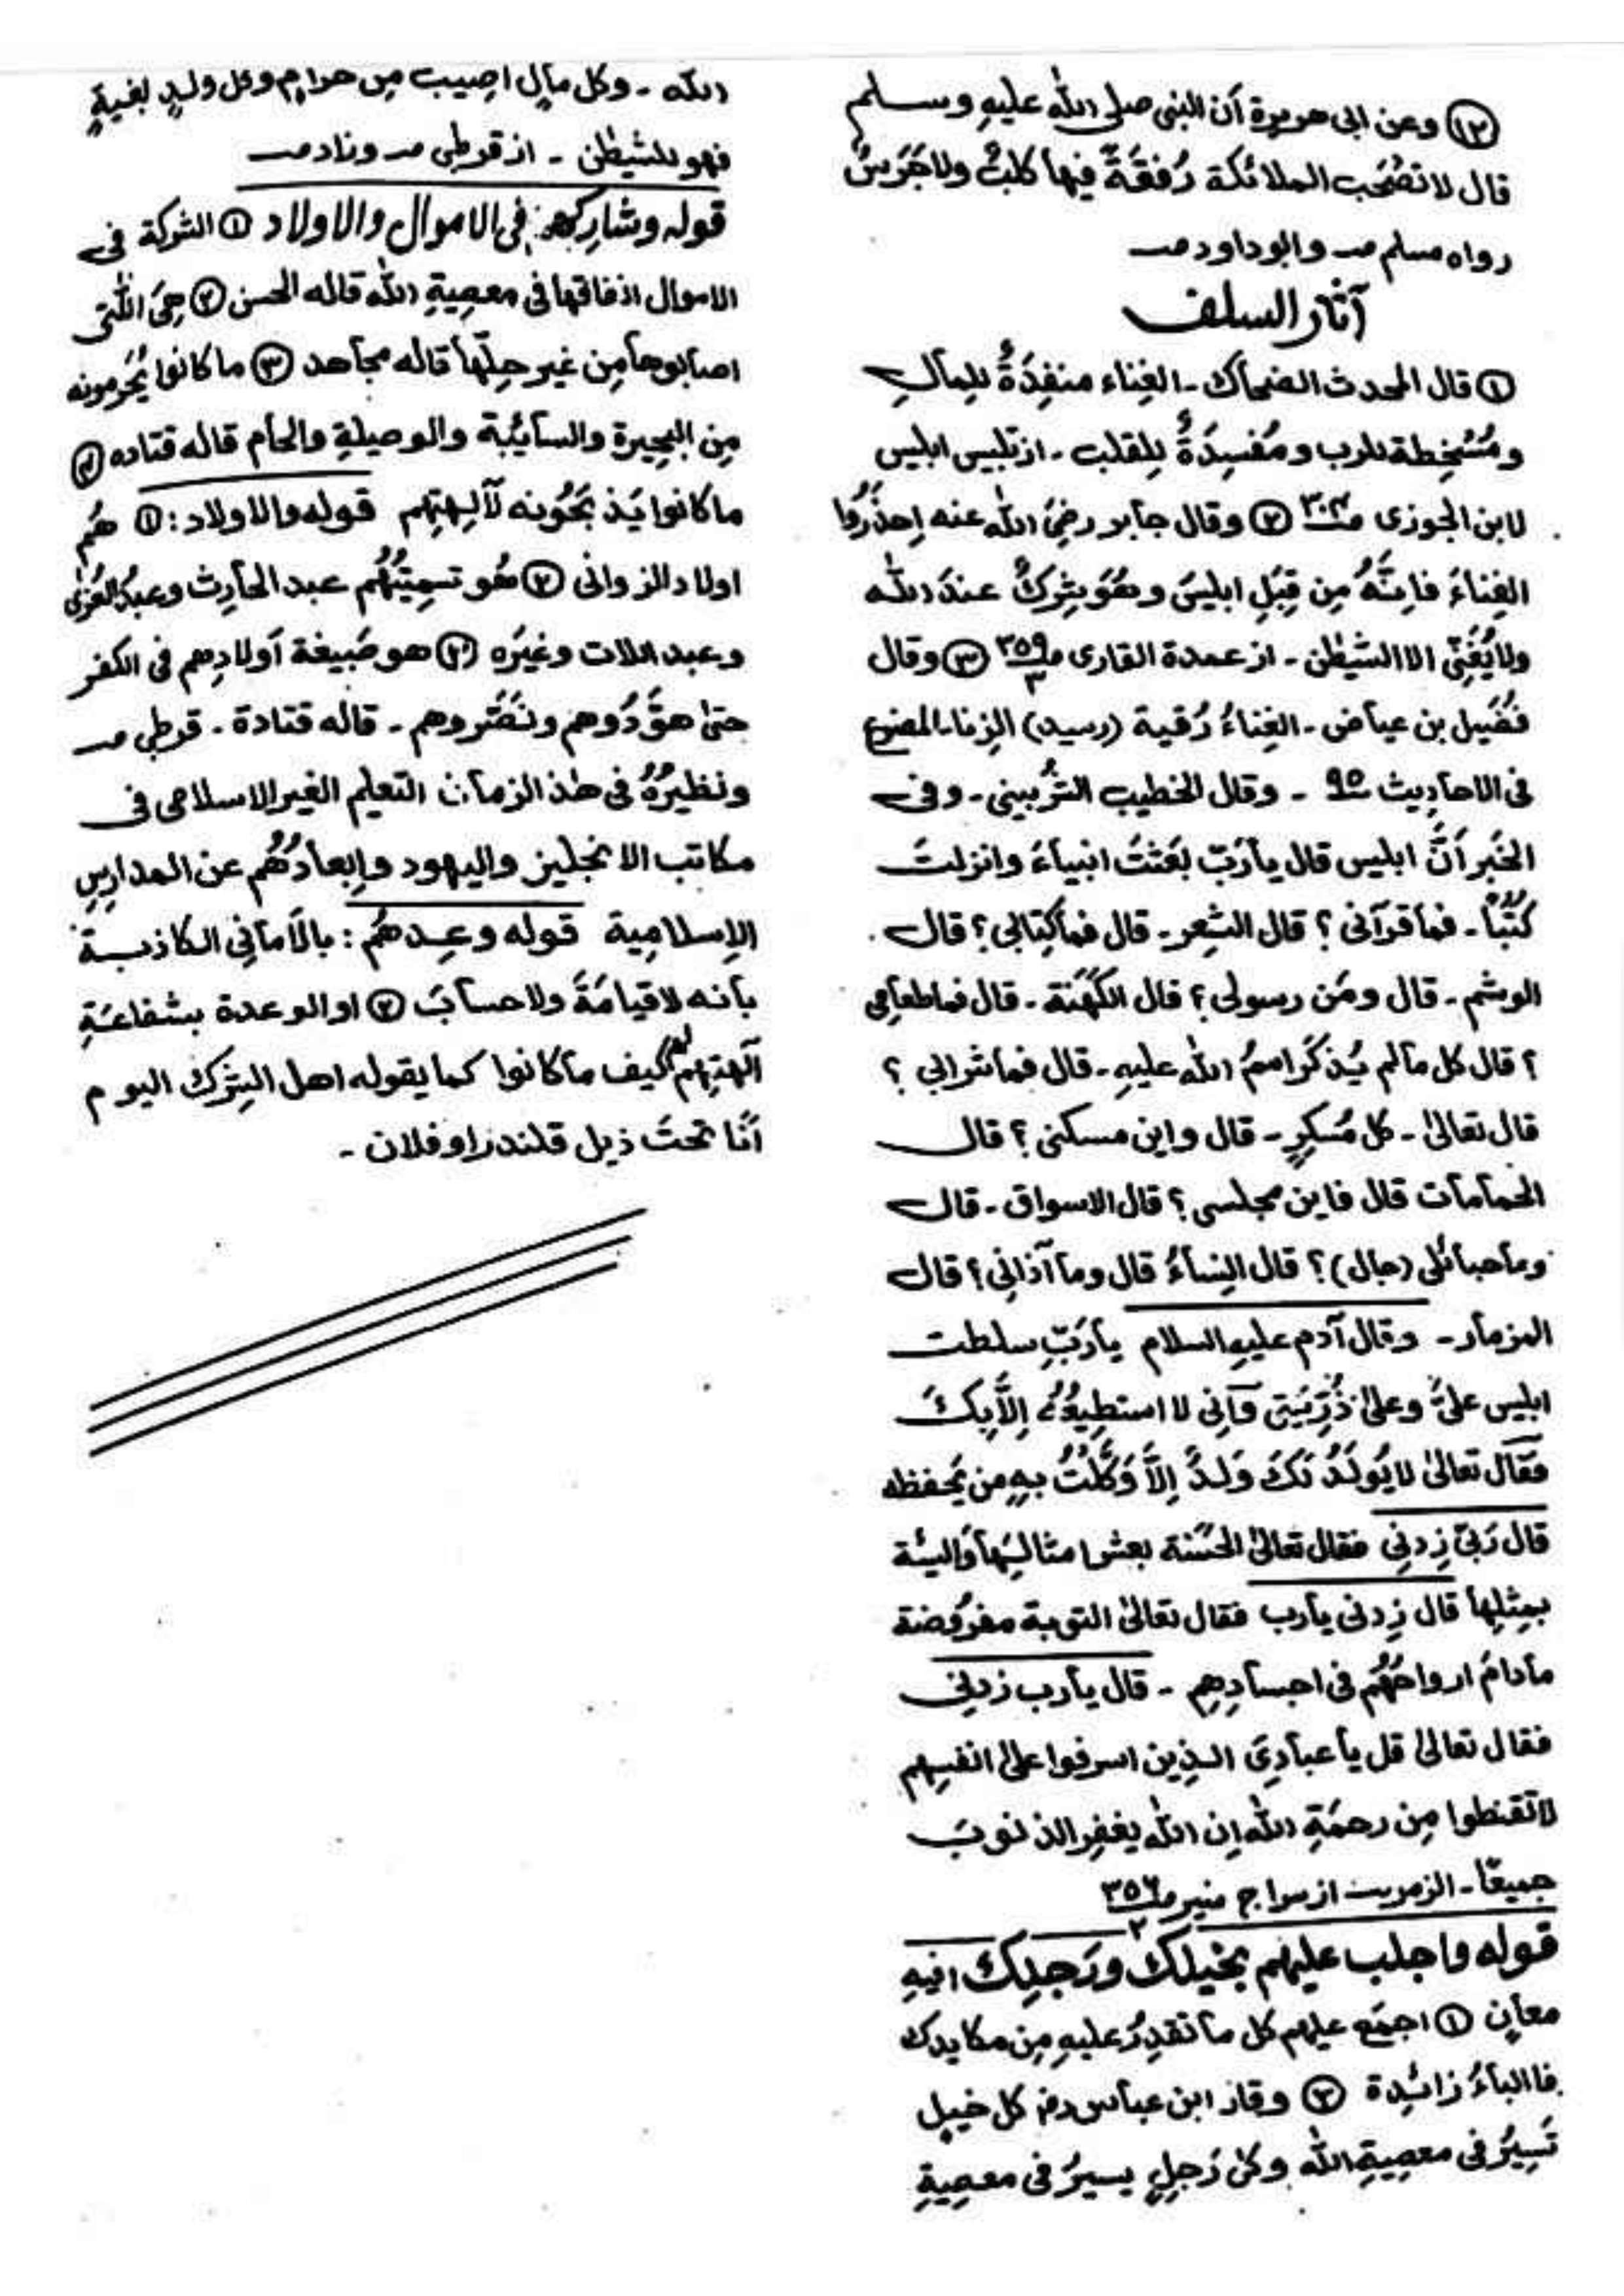 ⑫ وعن ابی هریرة أن النبی صلی الله علیهِ وسلم
قال لا تصْحَب الملائکة رُفقَةً فیها کلبٌ ولا جَرَسٌ
رواه مسلم صـ وابوداود صـ
آثار السلف
① قال المحدث الضحاک ۔ الغِناء منفِدَةٌ لِلمالِ
ومُسْخِطة للرب ومُفسِدَةٌ لِلقلب ۔ از تلبیس ابلیس
لابن الجوزی صـ ۳۰۳ ② وقال جابر رضِیَ الله عنه اِحذَرُوا
الغِناءَ فاِنَّهُ مِن قِبَلِ ابلیسَ وهُوَ شِرکٌ عندَ الله
ولا یُغَنِّی الا الشیطٰن ۔ از عمدة القاری صـ ۳۵۹/۳ ③ وقال
فُضَیل بن عیاض ۔ الغِناءُ رُقیة (رسید) الزِنا۔ المصنوع
فی الاحادِیث ۹۵ ۔ وقال الخطیب الشُربینی ۔ وفی
الخَبر اَنَّ ابلیس قال یا رَبّ بعَثتَ انبیاءَ وانزلتَ
کُتُبًا ۔ فما قرآنی ؟ قال الشِعر ۔ قال فما کِتابی ؟ قال
الوشم ۔ قال ومَن رسولی ؟ قال الکَهَنَة ۔ قال فما طعامی
؟ قال کل مالم یُذکَر اسمُ الله علیهِ ۔ قال فما شرابی ؟
قال تعالیٰ ۔ کل مُسکِرٍ ۔ قال واین مسکنی ؟ قال
الحَمامات قال فاین مجلسی ؟ قال الاسواق ۔ قال
وما حبائلی (جال) ؟ قال النِساءُ قال وما آذانِی ؟ قال
المزمار ۔ وقال آدم علیهِ السلام یا رَبِّ سلطت
ابلیس علیَّ وعلیٰ ذُرِّیَتِی وَاِنِی لا استطِیعُهُ اِلَّا بِکَ
فَقَال تعالیٰ لا یُولَدُ لَکَ وَلَدٌ اِلَّا وَکَّلْتُ بهِ من یَحفظه
قال رَبِّ زِدنِی فقال تعالیٰ الحَسَنة بعشر امثالِهَا وَالسیئة
بمِثلِها قال زِدنی یارب فقال تعالیٰ التوبة مفروُضة
مادامَ ارواحُهُم فی اجسادِهِم ۔ قال یارب زدنِی
فقال تعالیٰ قل یا عبادِیَ الـذِین اسرفوا علیٰ انفسِهم
لاتقنطوا مِن رحمَةِ اللهِ اِن الله یغفِر الذنوبَ
جمیعًا ۔ الزمر از سراج منیر صـ ۳۵۶/۲
قوله واجلب علیهم بخَیلِکَ ورَجِلِکَ فیهِ
معانٍ ① اجمَع علیهم کل ما تقدِرُ علیهِ مِن مکایدک
فاالباءُ زائِدة ② وقال ابن عباس رضـ کل خیلٍ
تَسِیرُ فی معصِیةِ الله وکل رَجِلٍ یسیرُ فی معصِیةِ
الله ۔ وکل مالٍ اصِیب مِن حرامٍ وکل ولدٍ لغیةٍ
فهو للشیطٰن ۔ از قرطبی صـ وزاد صـ
قوله وشارِکهم فِی الاموال والاولاد ① الشرکة فی
الاموال انفاقها فی معصِیةِ الله قاله الحسن ② هِیَ اللَّتی
اصابوها مِن غیر حِلِّها قاله مجاهد ③ ما کانوا یُحَرِمونه
مِن البحِیرة والسائِبة والوصِیلةِ والحَام قاله قتاده ④
ما کانوا یَذبَحُونه لآلِهتِهم قوله والاولاد : ① هُم
اولاد الزوانی ② هُو تسمِیَتُهُم عبد الحَارِث وعبدُ العُزیٰ
وعبد اللات وغیَره ③ هو صَبیغة اَولادِهم فی الکفر
حتیٰ هوَّدُوهم ونَصَّروهم ۔ قاله قتادة ۔ قرطبی صـ
ونظیرُهُ فی هٰذ الزمان التعلِیم الغیر الاسلامی فی
مکاتب الانجلیز والیهود وابِعادُهُم عن المدارِسِ
الاِسلامِیة قوله وعِدهُم : بالاَمانِی الکاذبـة
بانه لا قیامَةَ ولا حسابَ ② او الوعدة بشفاعَةِ
آلهتِهم لهم کیف ما کانوا کما یقوله اهل الشِرک الیوم
اَنَا تحتَ ذیل قلندر او فلان ۔